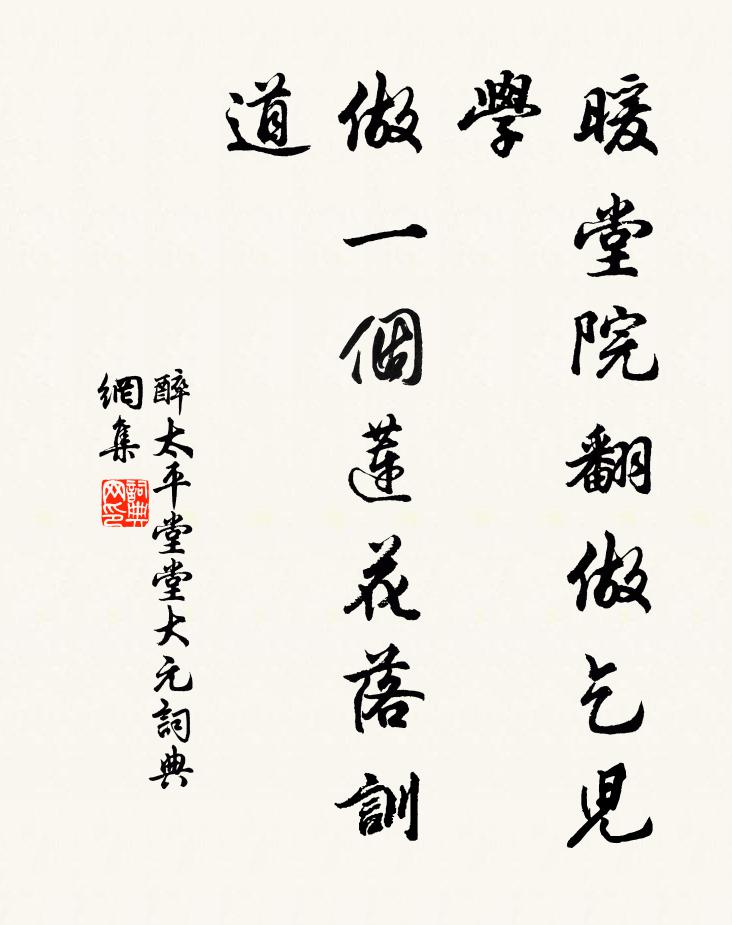 暖堂院翻做乞児
學
做一個蓮花落訓
道
醉太平堂堂大元詞典
網集
詞典
网印